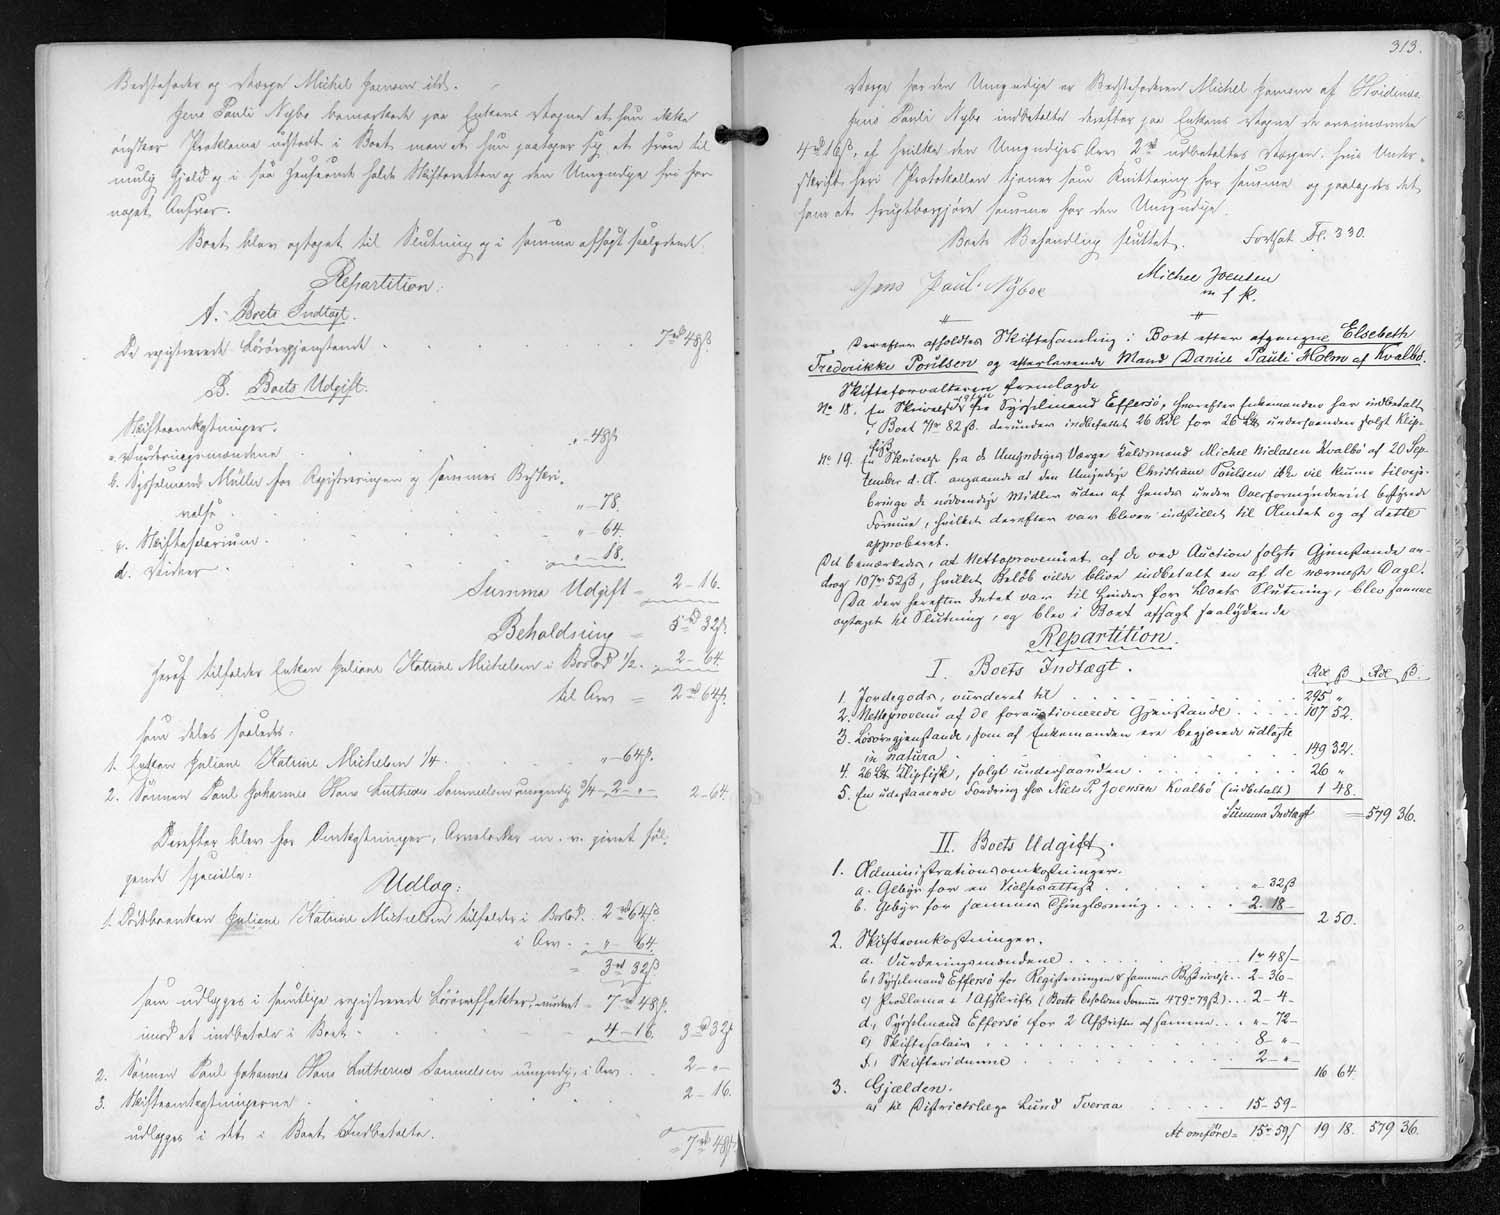 Bedstefader og Værge Michel Joensen ibd.
Jens Pauli Nybo bemærkede paa Enkens Vegne at hun ikke
ønsker Proklama udstedt i Boet men at hun paatager sig at svare til
mulig Gjæld og i saa Henseende holde Skifteretten og den Umyndige fri for
noget Ansvar.
Boet blev optaget til Slutning og i samme afsagt saalydende
Repartition:
A. Boets Indtægt.
De registrerede Løsøregjenstande . . . 7rd 48ß.
B. Boets Udgift.
Skifteomkostninger.
a. Vurderingsmændene . . . „ - 48ß
b. Sysselmand Müller for Registreringen og sammes Beskri-
velse . . . „ - 78.
c. Skiftesalarium . . . „ - 64.
d. Vidner . . . „ - 18.
Summa Udgift = 2 - 16.
Beholdning = 5rd 32ß.
Heraf tilfalder Enken Juliane Katrine Michelsen i Boslod 1/2. 2 - 64.
til Arv = 2rd 64ß.
som deles saaledes:
1. Enken Juliane Katrine Michelsen 1/4 . . „ - 64ß.
2. Sønnen Paul Johannes Hans Lutherus Samuelsen umyndig 3/4 - 2 - „ - 2 - 64.
Derefter blev for Omkostninger, Arvelodder m. v. givet føl-
gende specielle:
Udlæg:
1. Enken Juliane Katrine Michelsen tilfalder i Boslod . . 2rd 64ß.
i Arv . . „ - 64.
= 3rd 32ß
som udlægges i samtlige registrerede Løsøreffekter, vurderet = 7rd 48ß.
imod at indbetale i Boet . . . 4 - 16. 3rd 32ß
2. Sønnen Paul Johannes Hans Lutherus Samuelsen umyndig, i Arv . . 2 - „ -
3. Skifteomkostningerne . . . 2 - 16.
udlægges i det i Boet Indbetalte.
= 7rd 48ß.
313.
Værge for den Umyndige er Bedstefaderen Michel Joensen af Hvidenæs.
Jens Pauli Nybo indbetalte derefter paa Enkens Vegne de ovennævnte
4rd 16ß, af hvilke den Umyndiges Arv 2rd udbetaltes Værgen. hvis Under-
skrift heri Protokollen tjener som Kvittering for samme og paalagdes det
ham at frugtbargjøre samme for den Umyndige.
Boets Behandling sluttet. Fortsat Fl. 330.
Jens Paul. Nyboe Michel Joensen
m f P.
Derefter afholdtes Skiftesamling i Boet efter afgangne Elsebeth
Frederikke Poulsen og efterlevende Mand Daniel Pauli Holm af Kvalbø.
Skifteforvalteren fremlagde
No 18. En Skrivelse fra Sysselmand Effersø, hvorefter Enkemanden har indbetalt
i Boet 71rd 82ß. derunder indbefattet 26 Rdl for 26 L℔ underhaanden solgt Klip-
fisk
No 19. En Skrivelse fra de Umyndiges Værge Kaldsmand Michel Niclasen Kvalbø af 20 Sep-
tember d. A. angaaende at den Umyndige Christiane Poulsen ikke vil kunne tilveje-
bringe de nødvendige Midler uden af hendes under Overformynderiet bestyrede
Formue, hvilket derefter var bleven indstillet til Amtet og af dette
approberet.
Det bemærkedes, at Nettoprovenuet af de ved Auction solgte Gjenstande an-
drog 107rd 52ß, hvilket Beløb vilde blive indbetalt en af de nærmeste Dage.
Da der herefter Intet var til Hinder for Boets Slutning, blev samme
optaget til Slutning, og blev i Boet afsagt saalydende
Repartition.
I. Boets Indtægt. Rdl ß Rdl ß.
1. Jordegods, vurderet til . . . 295 „
2. Nettoprovenu af de forauctionerede Gjenstande . . . 107 52.
3. Løsøregjenstande, som af Enkemanden ere begjærede udlagte
in natura . . . 149 32.
4. 26 L℔ Klipfisk, solgt underhaanden . . . 26 „
5. En udestaaende Fordring hos Niels P. Joensen Kvalbø (indbetalt) 1 48.
Summa Indtægt = 579 36.
II. Boets Udgift.
1. Administrationsomkostninger.
a. Gebyr for en Vielsesattest . . . „ 32ß
b. Gebyr for sammes Thinglæsning . . . 2. 18 -
2 50.
2. Skifteomkostninger.
a. Vurderingsmændene . . . 1rd 48ß -
b) Sysselmand Effersø for Registreringen & sammes Beskrivelse . . 2 - 36 -
c) Proclama + 1 Afskrift (Boets beholdne Formue 479rd 79ß) . . . 2 - 4 -
d) Sysselmand Effersø for 2 Afskrifter af samme . . . „ - 72 -
e) Skiftesalair . . . 8 - „ -
f) Skiftevidnerne . . . 2 - „ -
16 64.
3. Gjælden.
a) til Districtslæge Lund Tveraa . . . 15 - 59 -
At omføre = 15rd 59ß 19 18. 579 36.